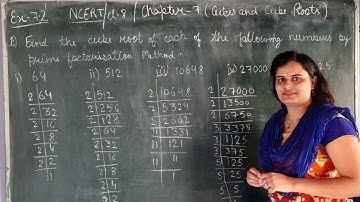 Ex:-7.2 NCERT/cl.8 / Chapter-7 (Cubes and Cube Roots)
1) Find the cube root of each of the following numbers by
prime factorisation Method:-
i) 64 ii) 512 iii) 10648 iv) 27000
2 64 2 512 2 10648 2 27000
2 32 2 256 2 5324 2 13500
2 16 2 128 2 2662 2 6750
2 8 2 64 11 1331 3 3375
2 4 2 32 11 121 3 1125
2 2 2 16 11 11 3 375
2 8 1 5 125
2 4 5 25
2 2 5 5